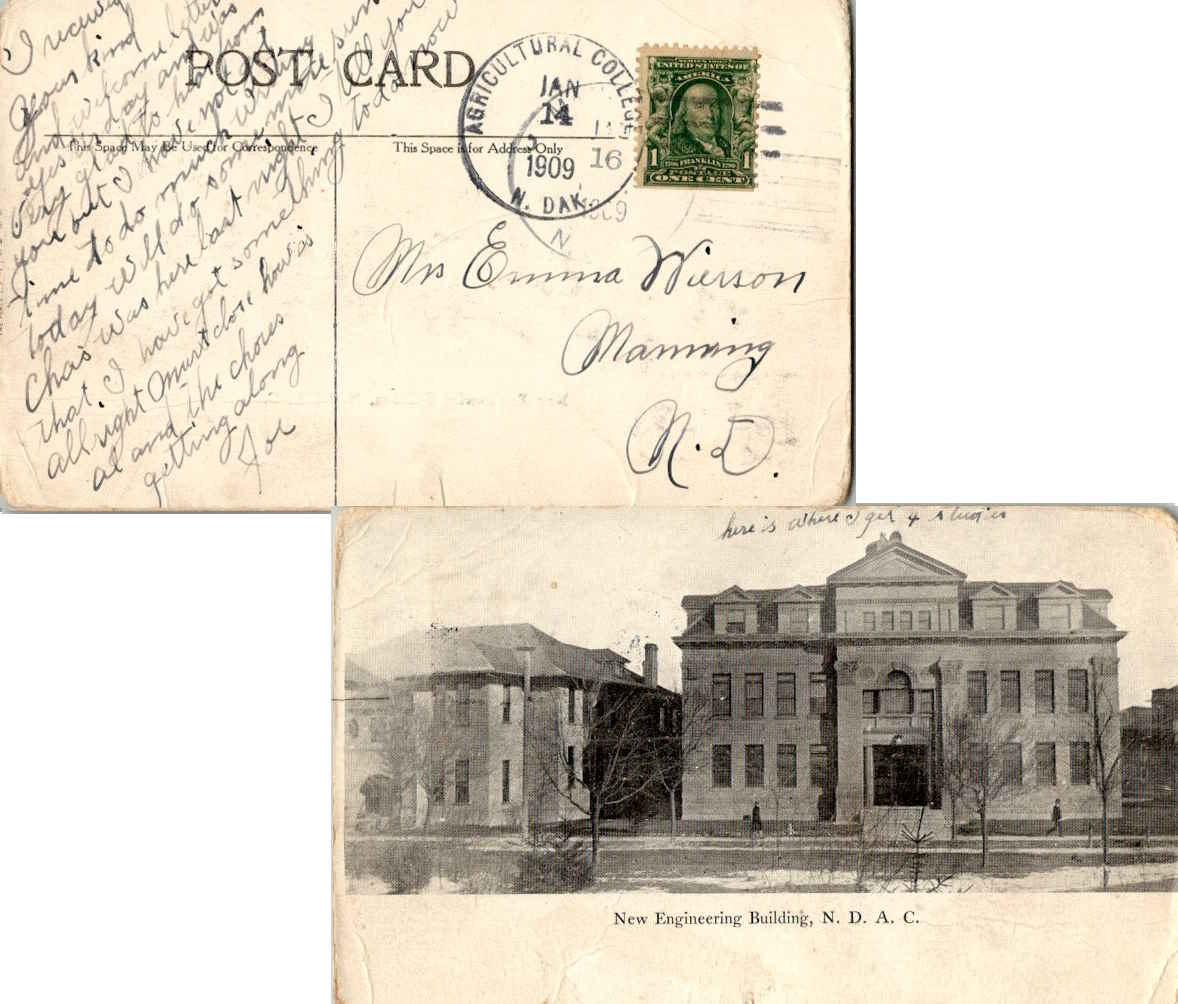 POST CARD
This Space May Be Used for Correspondence
This Space is for Address Only
AGRICULTURAL COLLEGE
JAN
14
1909
N. DAK.
JAN
16
1909
N
SERIES 1902
UNITED STATES OF
AMERICA
1 1706 FRANKLIN 1790 1
POSTAGE
ONE CENT
I received
your kind
and welcome letter
yesterday and was
very glad to hear from
you but I have not
time to do much writing
today will do some in the sun
Chas was here last night I tell you
that I have got something to do now
all right Must close how is
al and the chores
getting along
Joe
Mrs Emma Wierson
Manning
N. D.
here is where I get 4 studies
New Engineering Building, N. D. A. C.